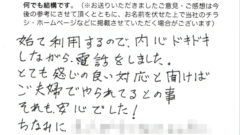 何でも結構です。(※お送りいただきましたご意見・ご感想は今
後の参考にさせて頂くとともに、お名前を伏せた上で当社のチラ
シ・ホームページなどに掲載させていただく場合がございます)
始て利用するので、内心ドキドキ
しながら、電話をしました。
とても感じの良い対応と聞けば
ご夫婦でやられてるとの事
それも安心でした!
ちなみに